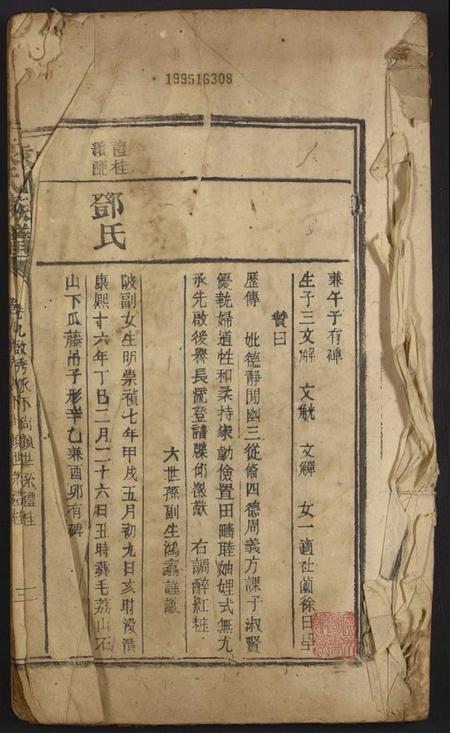 199516308
兼午子有碑
生子三文解 文觥 文觶 女一適社薗徐日
贊曰
歷傳 妣德靜閒幽三從脩四德周義方課子淑賢
優執婦道性和柔持家勤儉置田疇睦妯娌式無尤
承先啟後譽長流登譜牒仰徽猷 右調醉紅粧
六世孫副生鴻謹識
禮桂
繼醮
鄧氏
陂副女生明崇禎七年甲戌五月初九日亥時沒清
康熙十六年丁巳二月二十六日丑時葬毛荔山石
山下瓜藤吊子形辛乙兼酉卯有碑
氏族譜
卷九 派下